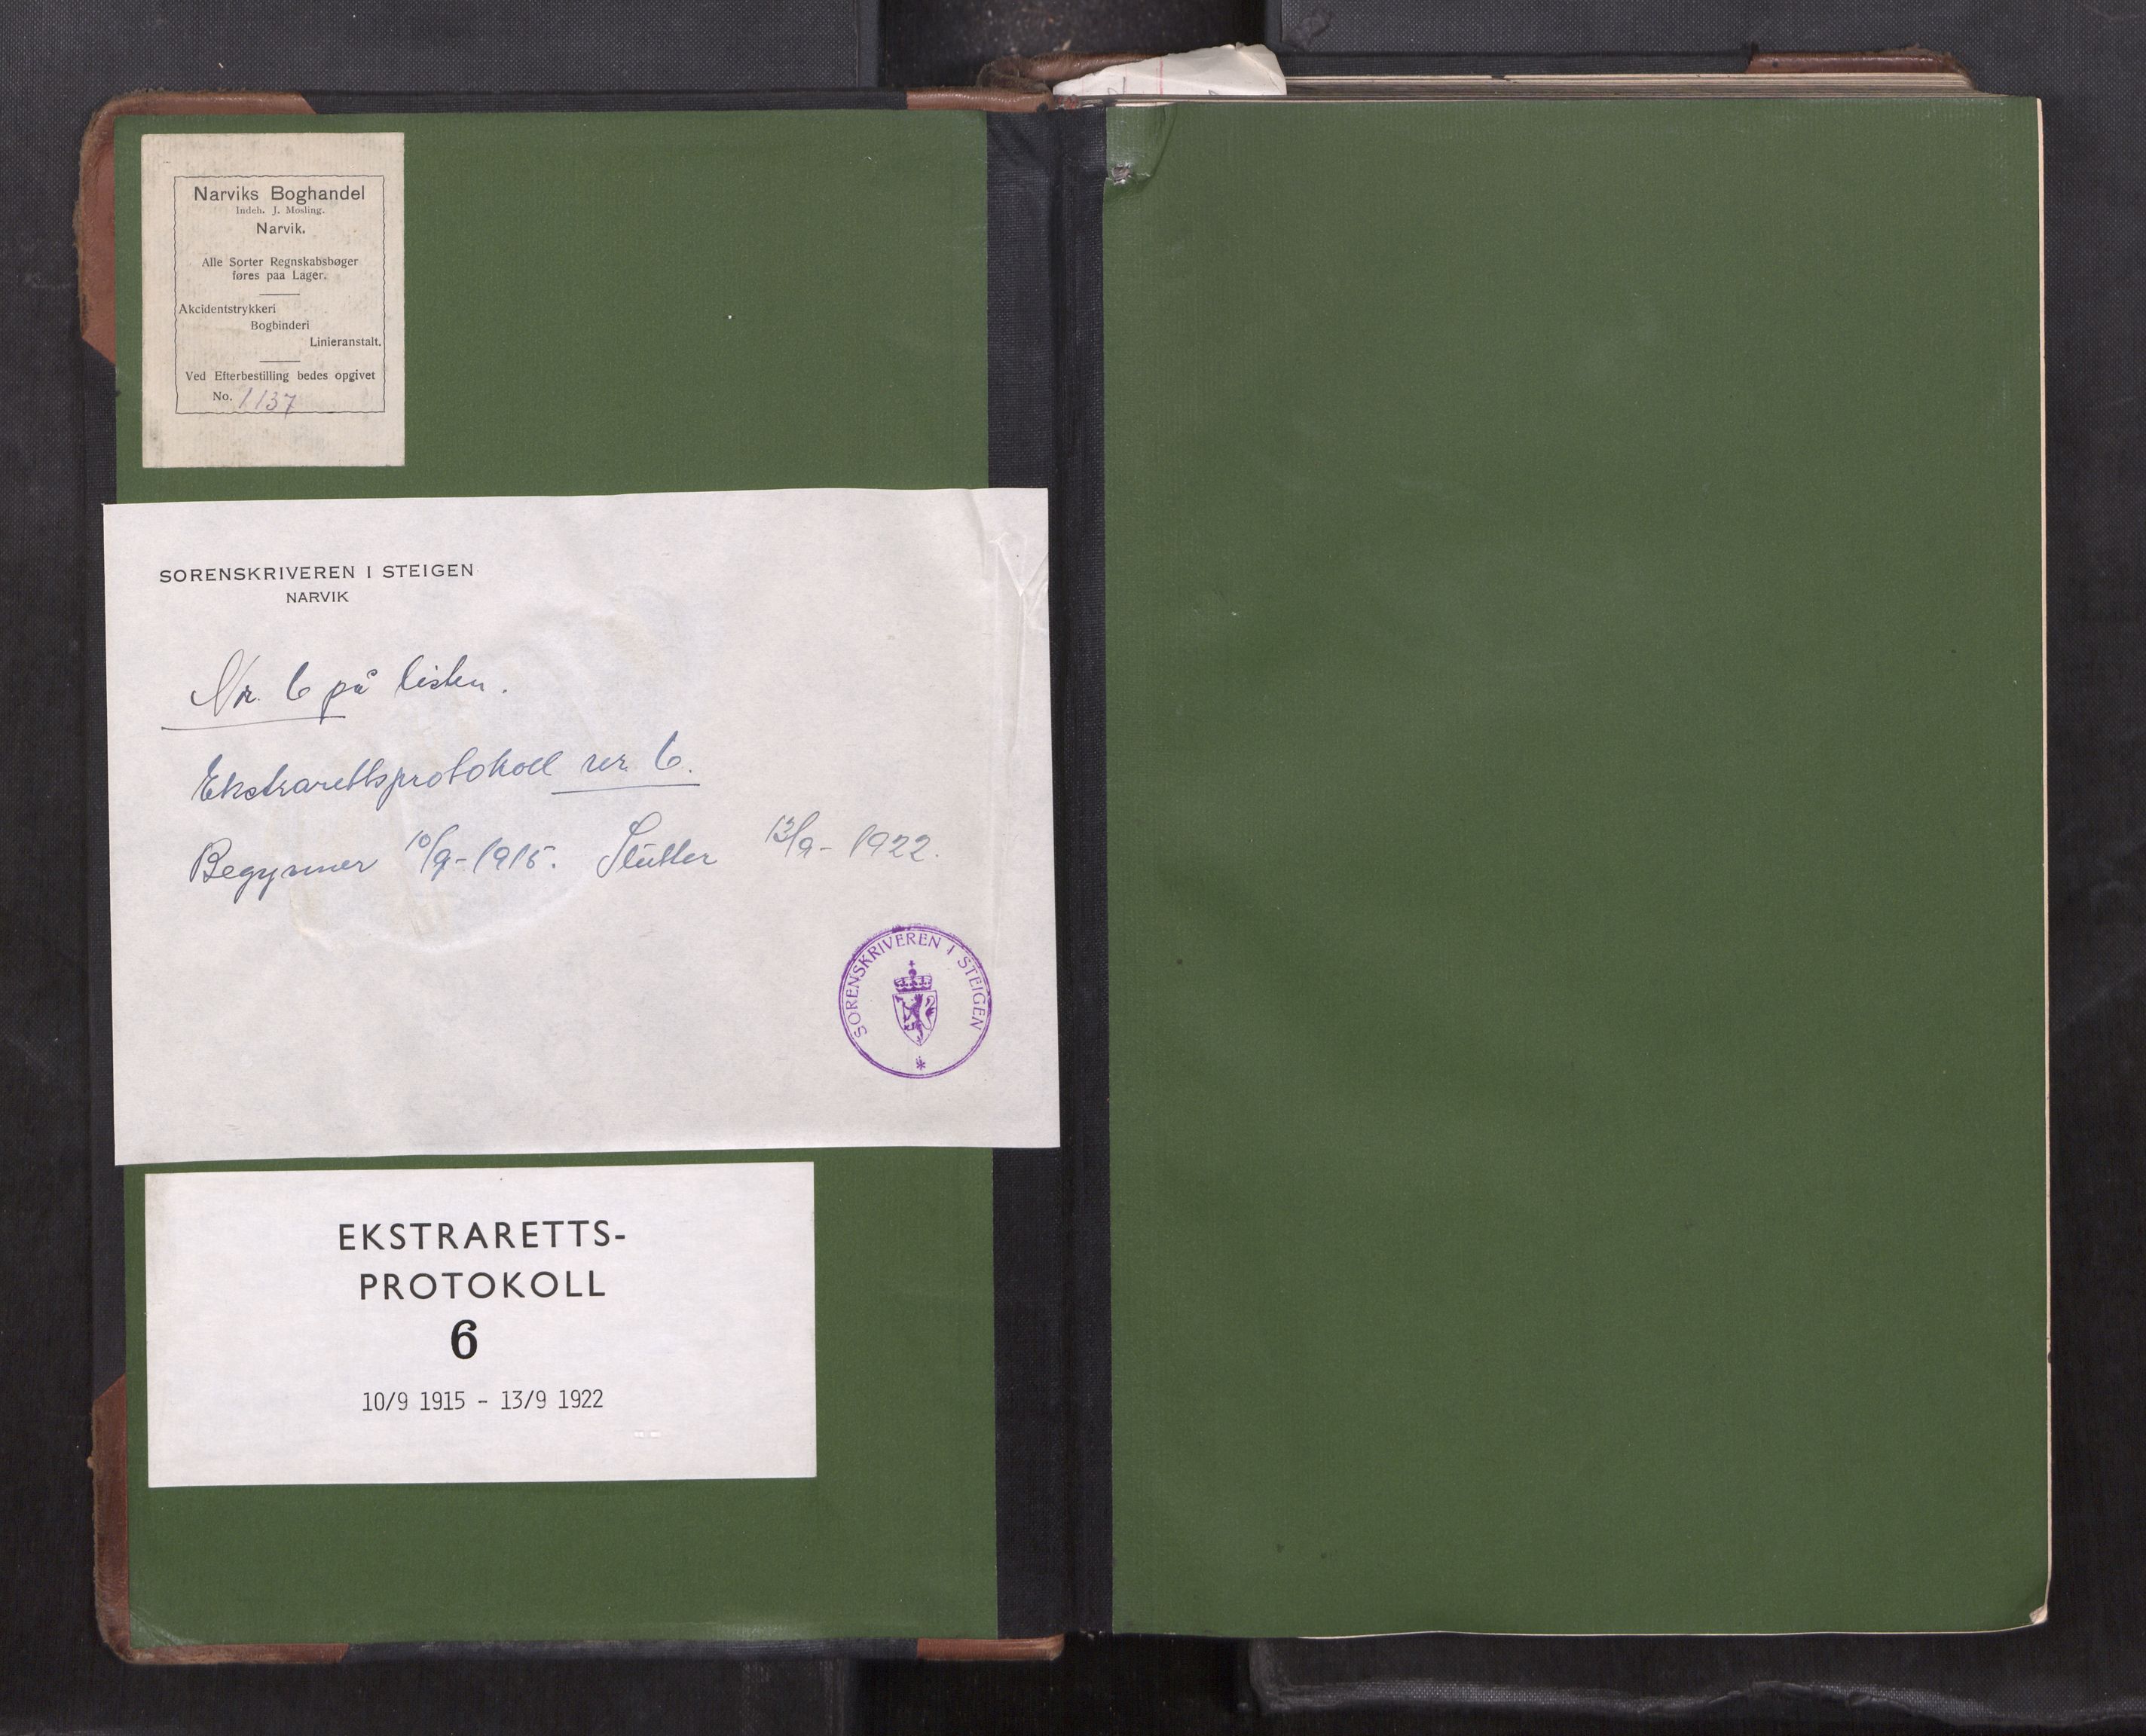 Narviks Boghandel
Indeh. J. Mosling.
Narvik.
Alle Sorter Regnskabsbøger
føres paa Lager.
Akcidentstrykkeri
Bogbinderi
Linieranstalt.
Ved Efterbestilling bedes opgivet
No. 1137
SORENSKRIVEREN I STEIGEN
NARVIK
Nr. 6 på listen.
Ekstrarettsprotokoll nr. 6.
Begynner 10/9-1915. Slutter 13/9-1922.
SORENSKRIVEREN I STEIGEN
*
EKSTRARETTS-
PROTOKOLL
6
10/9 1915 - 13/9 1922